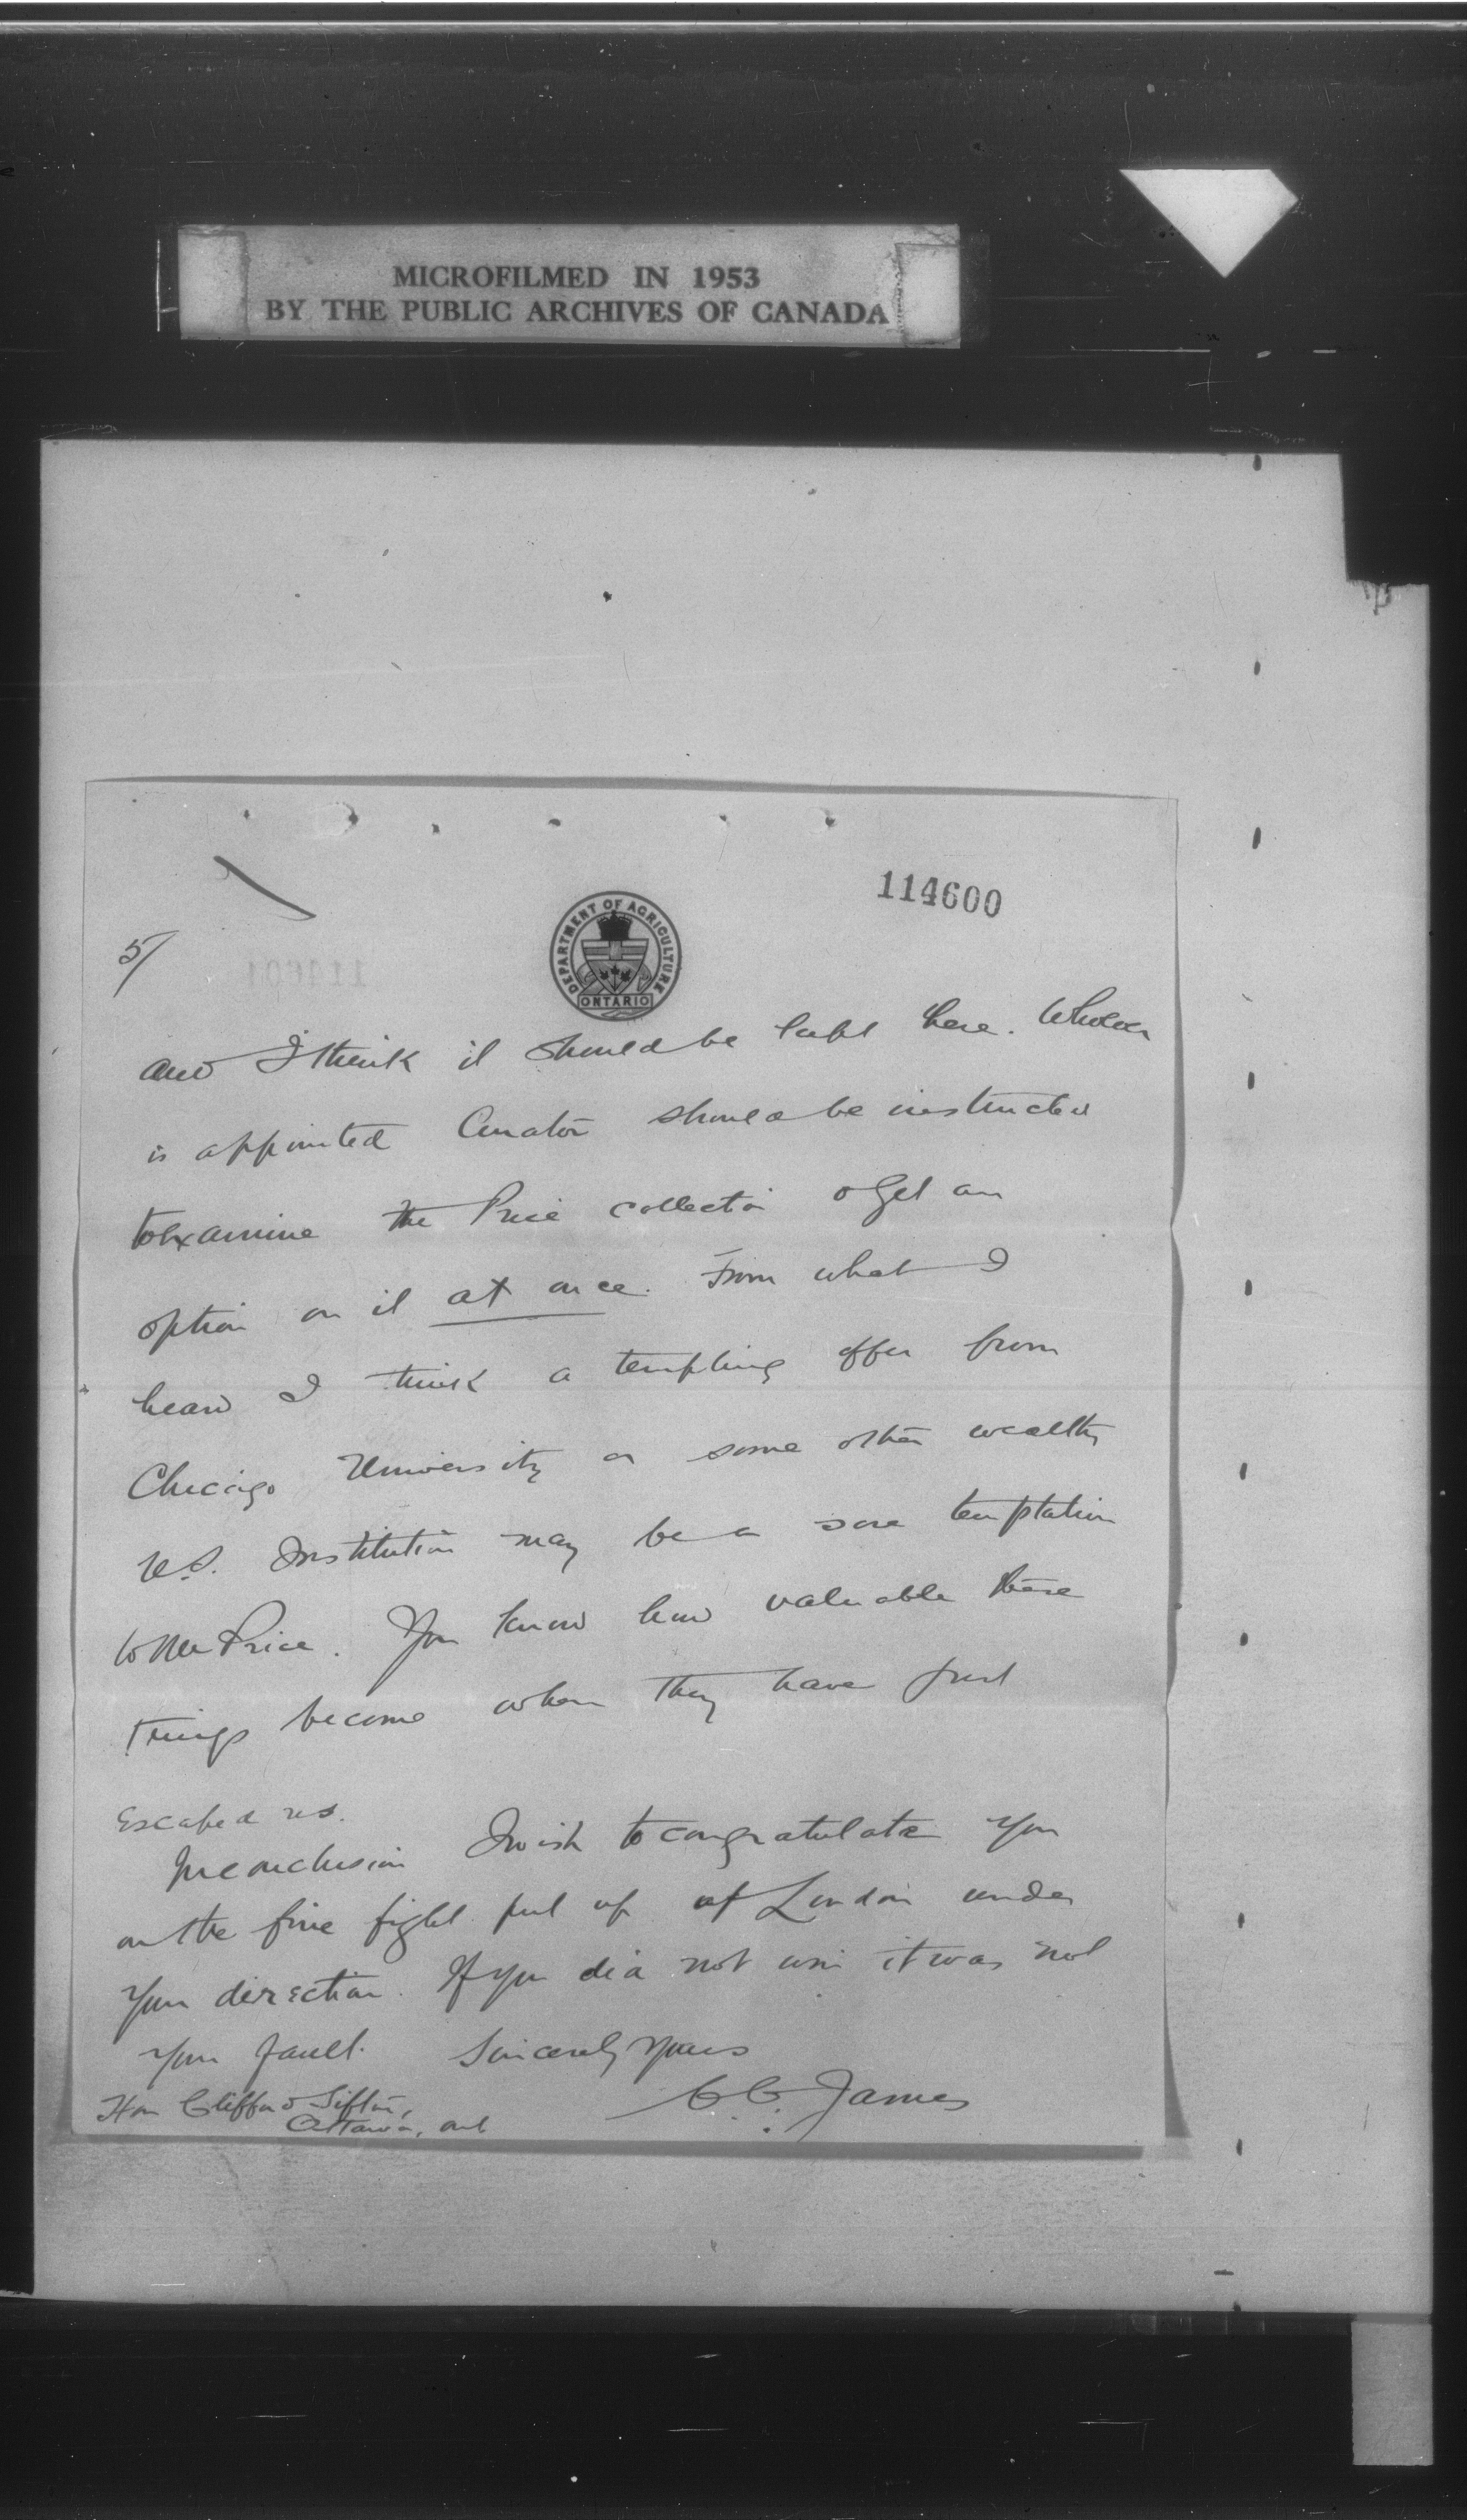 MICROFILMED IN 1953
BY THE PUBLIC ARCHIVES OF CANADA
114600
5/
DEPARTMENT OF AGRICULTURE
ONTARIO
and I think it should be kept here. Whoever
is appointed Curator should be instructed
to examine the Price collection & get an
option on it at once. From what I
hear I think a tempting offer from
Chicago University or some other wealthy
U.S. Institution may be a sore temptation
to Mr Price. You know how valuable these
things become when they have just
Escaped us.
In conclusion I wish to congratulate you
on the fine fight put up at London under
your direction. If you did not win it was not
your fault. Sincerely yours
C.C. James
Hon Clifford Sifton,
Ottawa, Ont